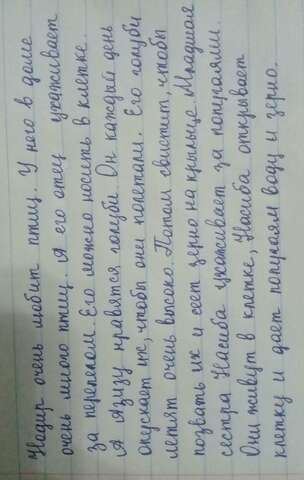 Надир очень любит птиц. У него в доме
очень много птиц. А его отец ухаживает
за перепелом. Его можно носить в клетке.
А Азизу нравятся голуби. Он каждый день
опускает их, чтобы они полетали. Его голуби
летят очень высоко. Потом свистит, чтобы
позвать их и сеет зерно на крыльце. Младшая
сестра Насиба ухаживает за попугаями.
Они живут в клетке, Насиба открывает
клетку и дает попугаям воду и зерно.